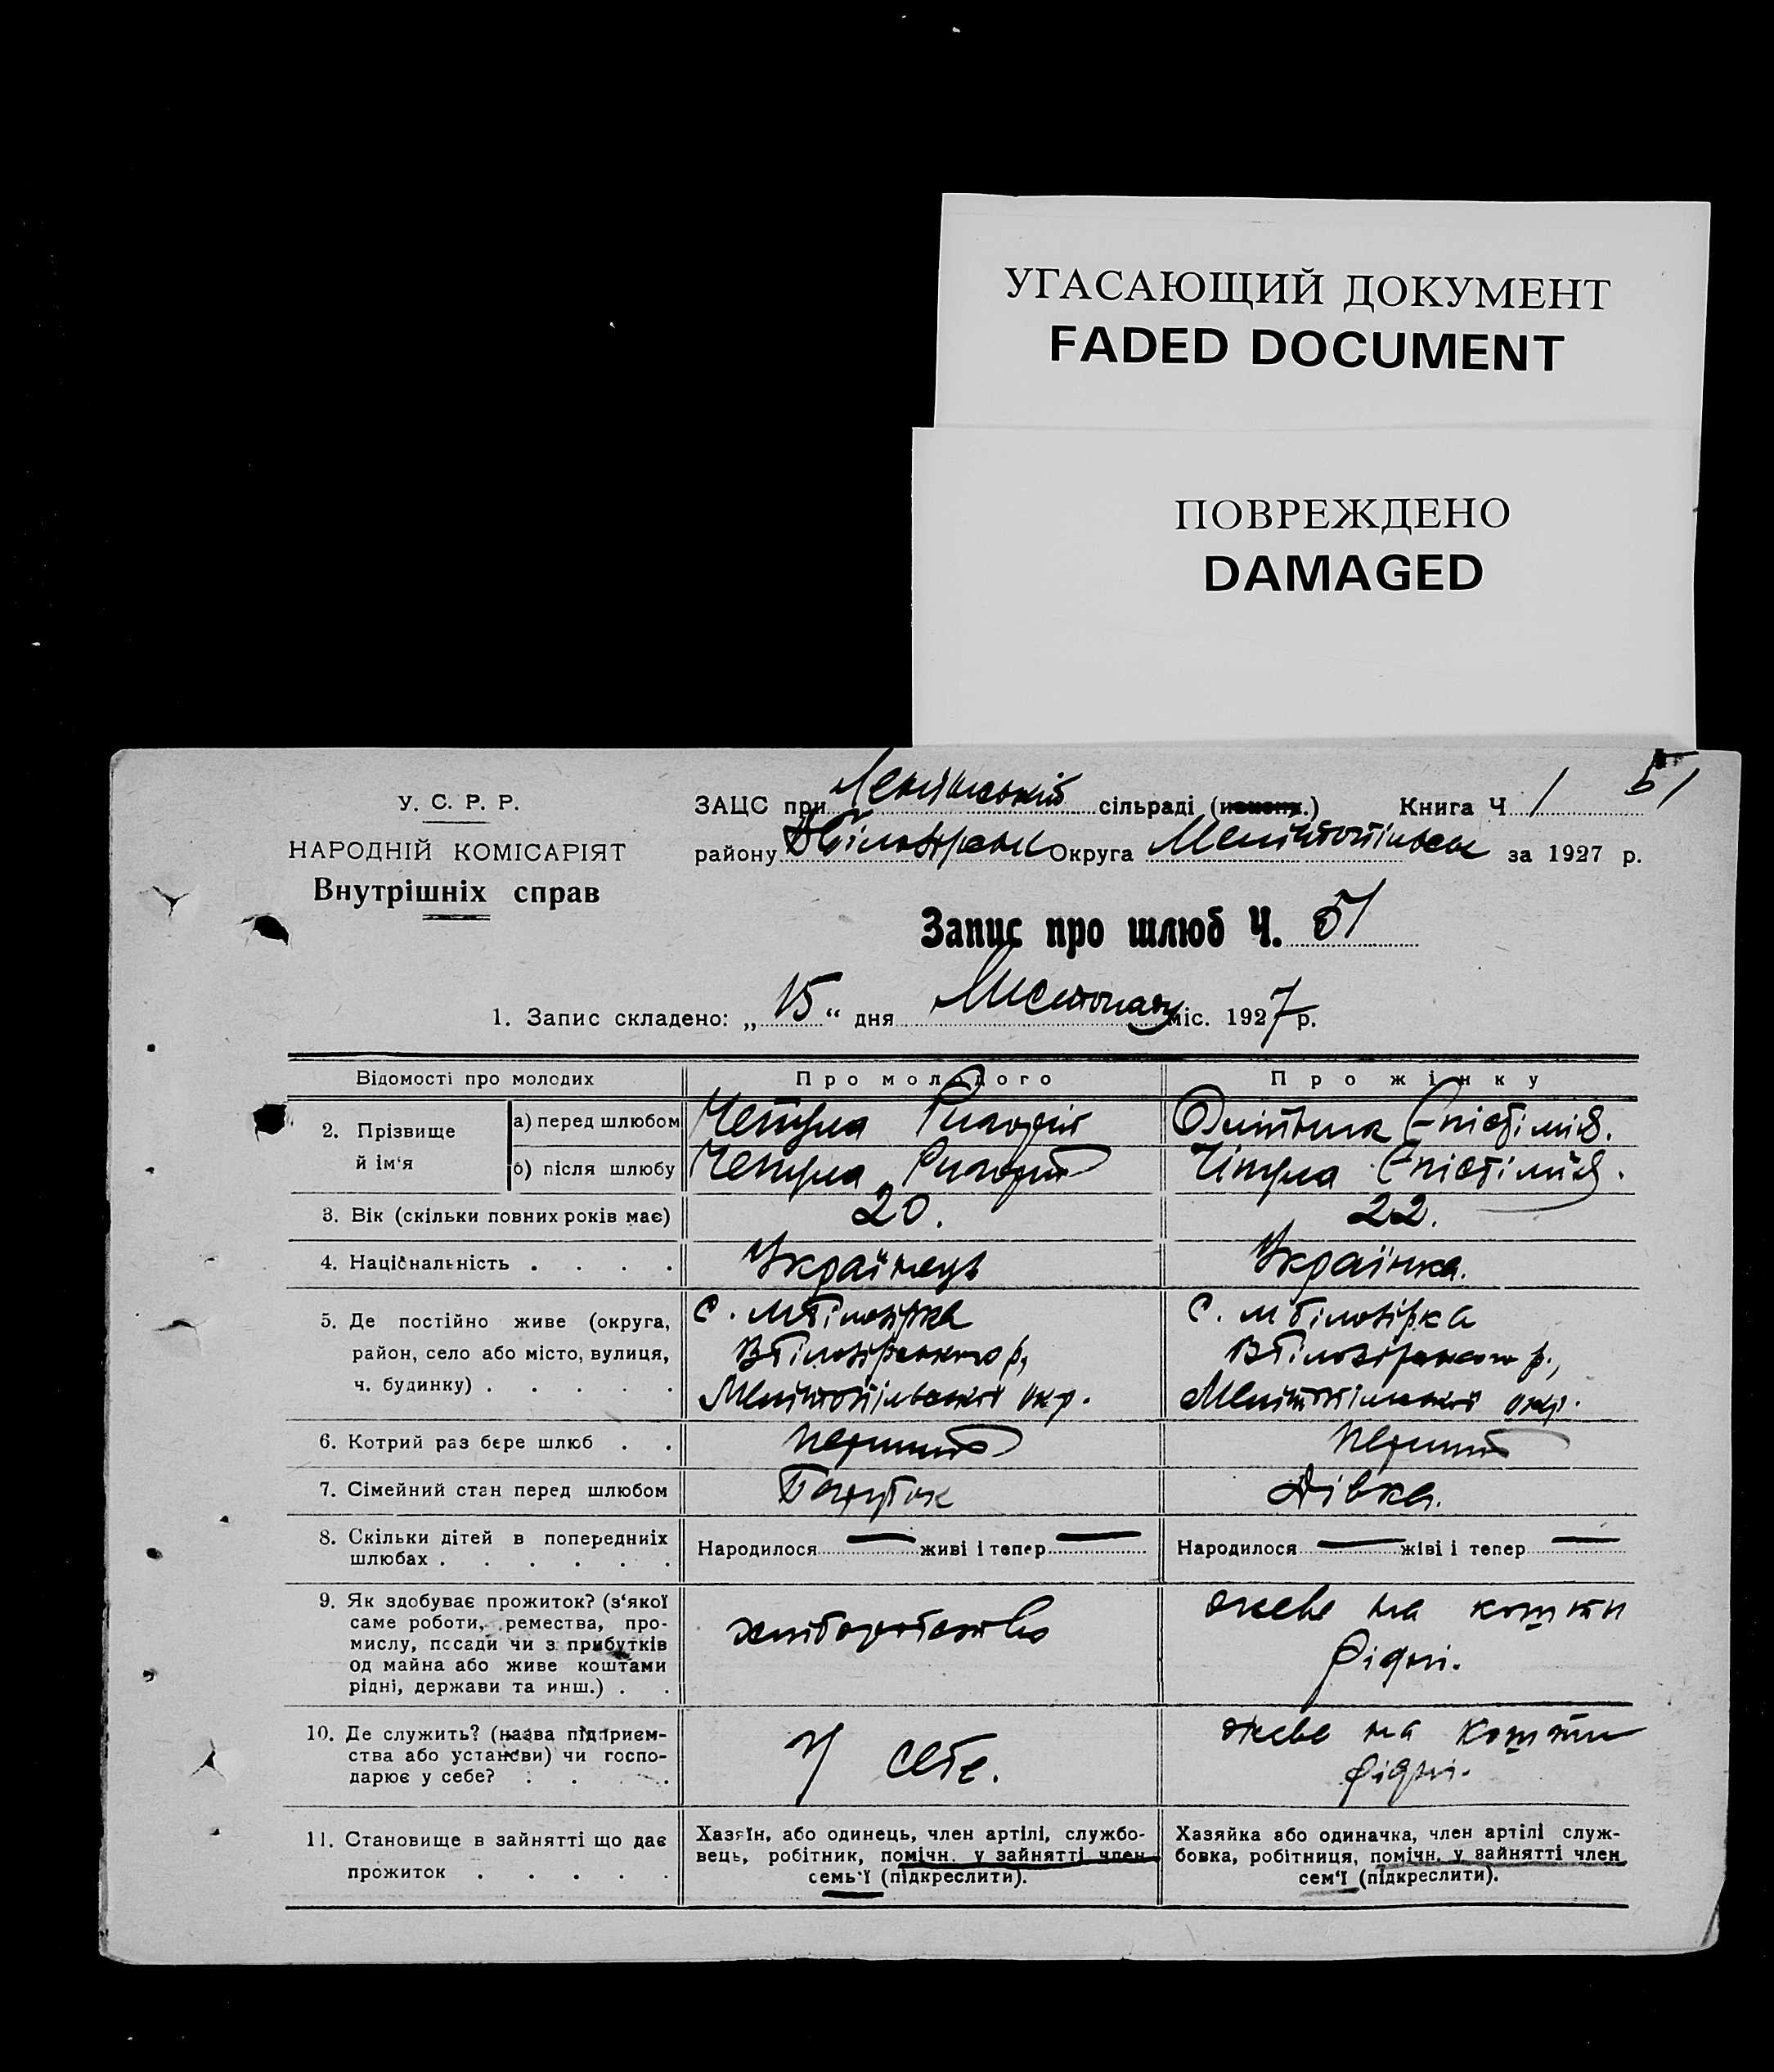 УГАСАЮЩИЙ ДОКУМЕНТ
FADED DOCUMENT
ПОВРЕЖДЕНО
DAMAGED
51
У. С. Р. Р.
НАРОДНІЙ КОМІСАРІЯТ
Внутрішніх справ
ЗАЦС при Ленінській сільраді Книга Ч 1
району Округа Мелітопільськ за 1927 р.
Запис про шлюб Ч. 51
1. Запис складено: „15“ дня Листопада міс. 1927 р.
Відомості про молодих
Про молодого
Про жінку
2. Прізвище й ім‘я
а) перед шлюбом
б) після шлюбу
3. Вік (скільки повних років має)
20.
22.
4. Національність . . . .
Українець
Українка.
5. Де постійно живе (округа,
район, село або місто, вулиця,
ч. будинку) . . . . .
с. МБілозірка
ВБілозірського р,
Мелітопільської окр.
с. МБілозірка
ВБілозірського р.,
Мелітопільської окр.
6. Котрий раз бере шлюб . .
перший
перший
7. Сімейний стан перед шлюбом
Парубок
Дівка.
8. Скільки дітей в попередниіх
шлюбах . . . . . .
Народилося — живі і тепер —
Народилося — жіві і тепер —
9. Як здобуває прожиток? (з‘якої
саме роботи, ремества, про-
мислу, посади чи з прибутків
од майна або живе коштами
рідні, держави та инш.) . .
хліборобство
живе на кошти
рідні.
10. Де служить? (назва підприєм-
ства або установи) чи госпо-
дарює у себе? . . .
У себе.
живе на кошти
рідні.
11. Становище в зайнятті що дає
прожиток . . . . .
Хазяїн, або одинець, член артілі, службо-
вець, робітник, помічн. у зайнятті член
семь‘ї (підкреслити).
Хазяйка або одиначка, член артілі служ-
бовка, робітниця, помічн. у зайнятті член
сем‘ї (підкреслити).